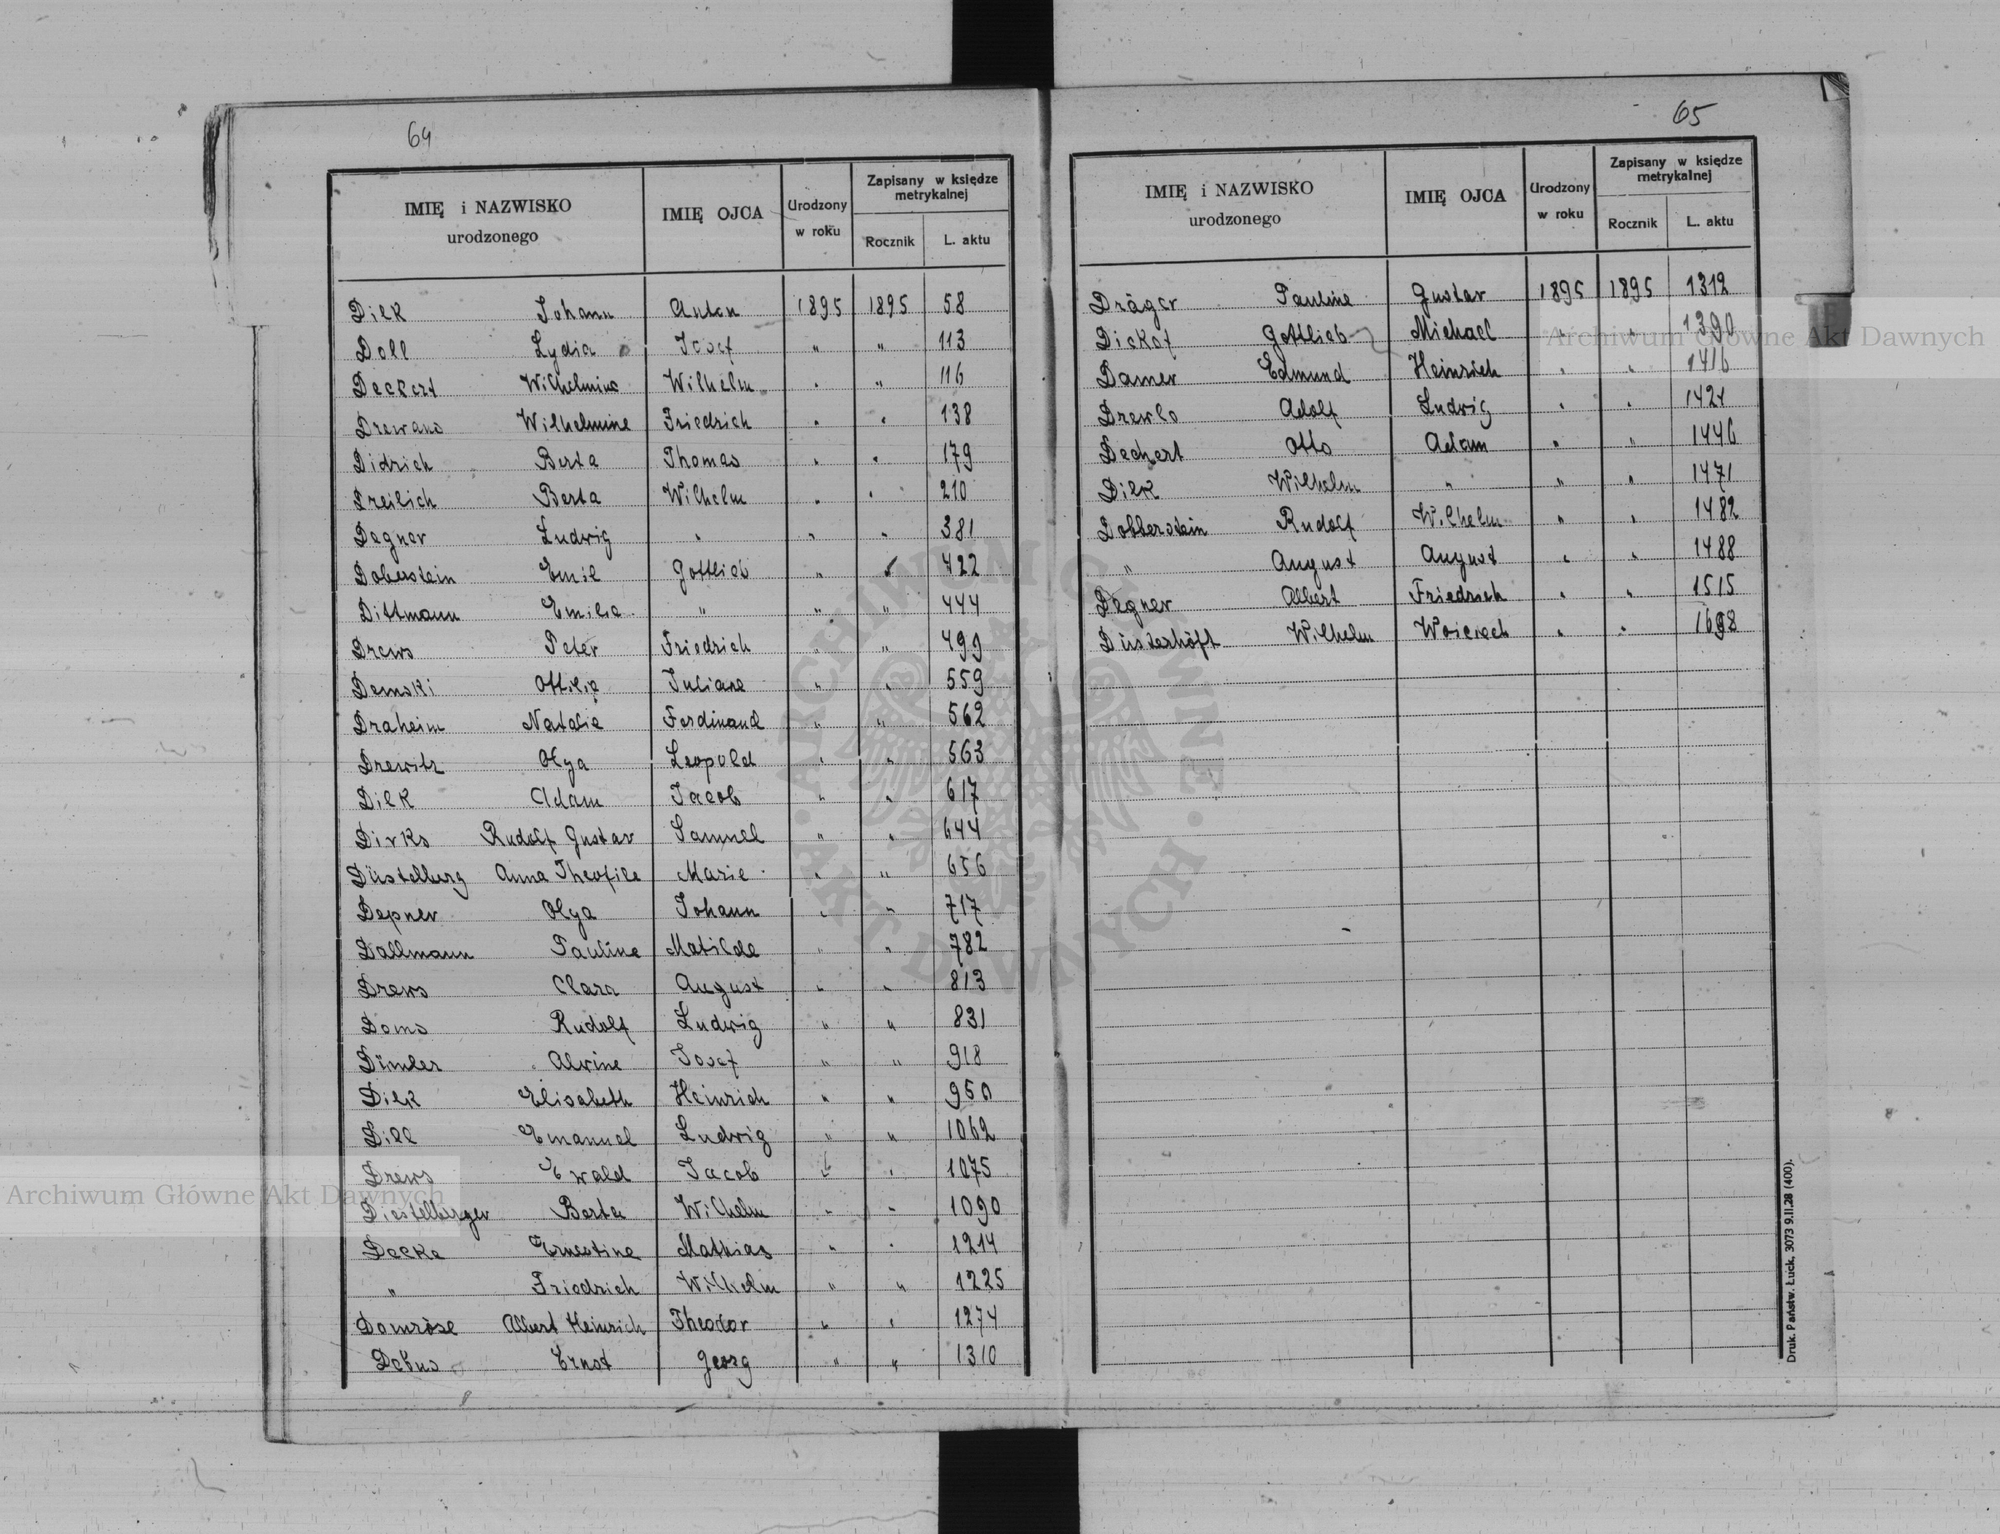 64
IMIĘ i NAZWISKO urodzonego | IMIĘ OJCA | Urodzony w roku | Zapisany w księdze metrykalnej
Rocznik | L. aktu
Dilk Johann Anton 1895 1895 58
Doll Lydia Josef " " 113
Deckert Wilhelmine Wilhelm " " 116
Drewans Wilhelmine Friedrich " " 138
Didrich Berta Thomas " " 179
Dreilich Berta Wilhelm " " 210
Degner Ludwig " " " 381
Doberstein Emil Gottlieb " " 422
Dittmann Emilie " " " 444
Drews Peter Friedrich " " 499
Demski Ottilie Juliane " " 559
Draheim Natalie Ferdinand " " 562
Drewitz Olga Leopold " " 563
Dilk Adam Jacob " " 617
Dirks Rudolf Gustav Samuel " " 644
Düstelberg Anna Theofile Marie " " 656
Depner Olga Johann " " 717
Dallmann Pauline Matilde " " 782
Drews Clara August " " 813
Doms Rudolf Ludwig " " 831
Alvine Josef " " 918
Dilk Elisabeth Heinrich " " 950
Dill Emanuel Ludwig " " 1062
Drews Ewald Jacob " " 1075
Diestelberger Berta Wilhelm " " 1090
Decke Ernestine Mathias " " 1214
" Friedrich Wilhelm " " 1225
Domröse Albert Heinrich Theodor " " 1274
Debus Ernst Georg " " 1310
65
IMIĘ i NAZWISKO urodzonego | IMIĘ OJCA | Urodzony w roku | Zapisany w księdze metrykalnej
Rocznik | L. aktu
Dräger Pauline Gustav 1895 1895 1312
Dickof Gottlieb Michael " " 1390
Damer Edmund Heinrich " " 1416
Drewlo Adolf Ludwig " " 1421
Dechert Otto Adam " " 1446
Dilk Wilhelm " " " 1471
Dobberstein Rudolf Wilhelm " " 1482
" August August " " 1488
Degner Albert Friedrich " " 1515
Düsterhöft Wilhelm Woiciech " " 1698
Druk. Państw. Łuck, 3073 9.II.28 (400).
Archiwum Główne Akt Dawnych
Archiwum Główne Akt Dawnych
ARCHIWUM GŁÓWNE AKT DAWNYCH